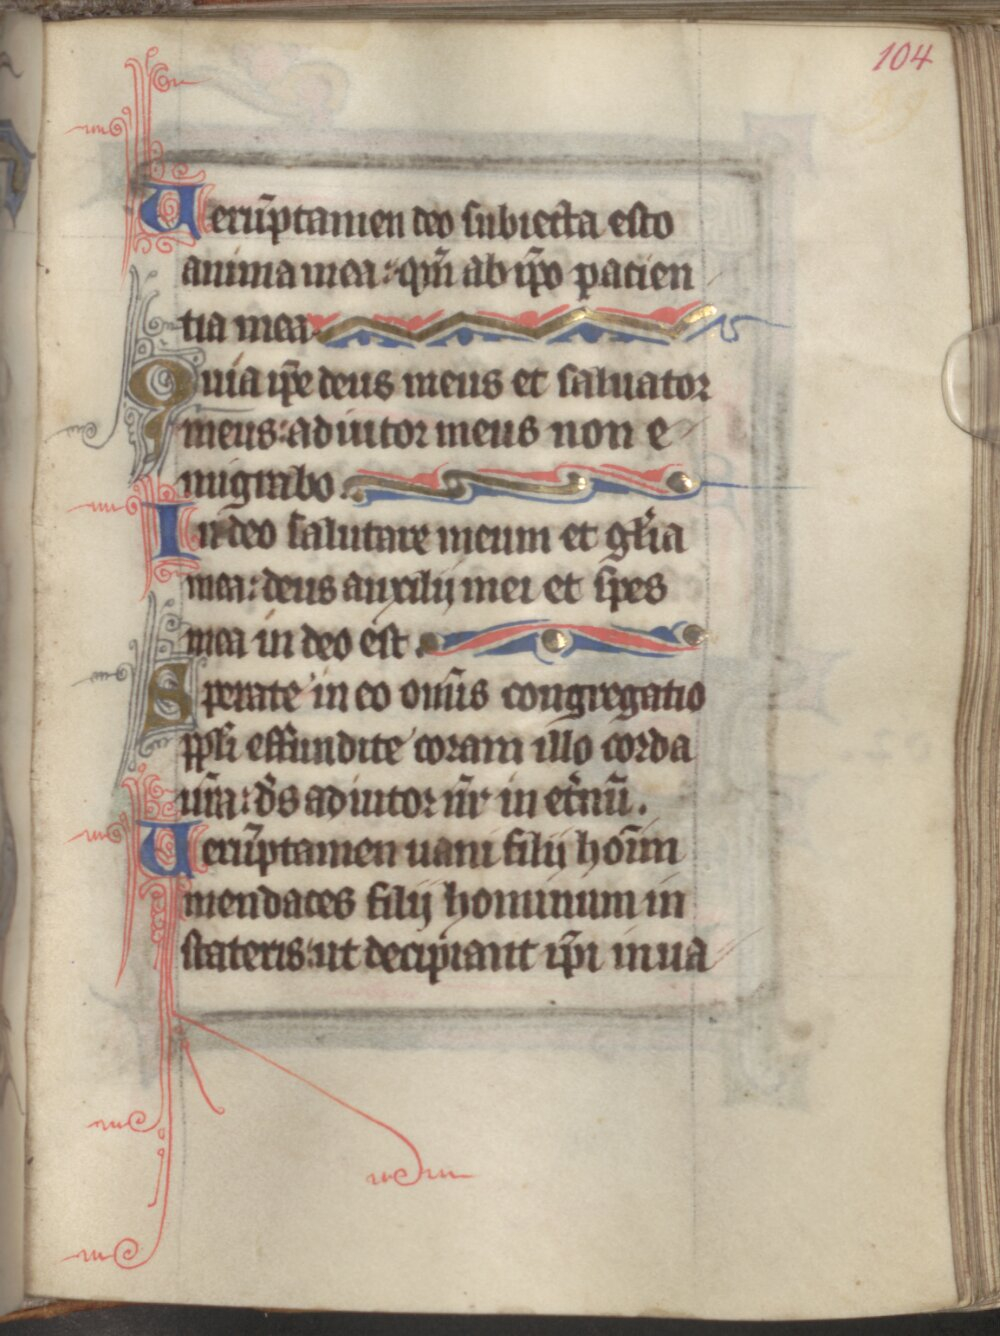 104
Uerūptamen deo subiecta esto
anima mea: qm̄ ab ip̄o pacien
tia mea
Quia ip̄e deus meus et saluator
meus: adiutor meus non e
migrabo.
In deo salutare meum et gl̄ia
mea: deus auxilij mei et spes
mea in deo est.
Sperate in eo om̄is congregatio
ppl̄i effundite coram illo corda
ur̄a: ds̄ adiutor nr̄ in et̄nū.
Uerūptamen uani filij hoīm
mendaces filij hominum in
stateris: ut decipiant ip̄i in ua